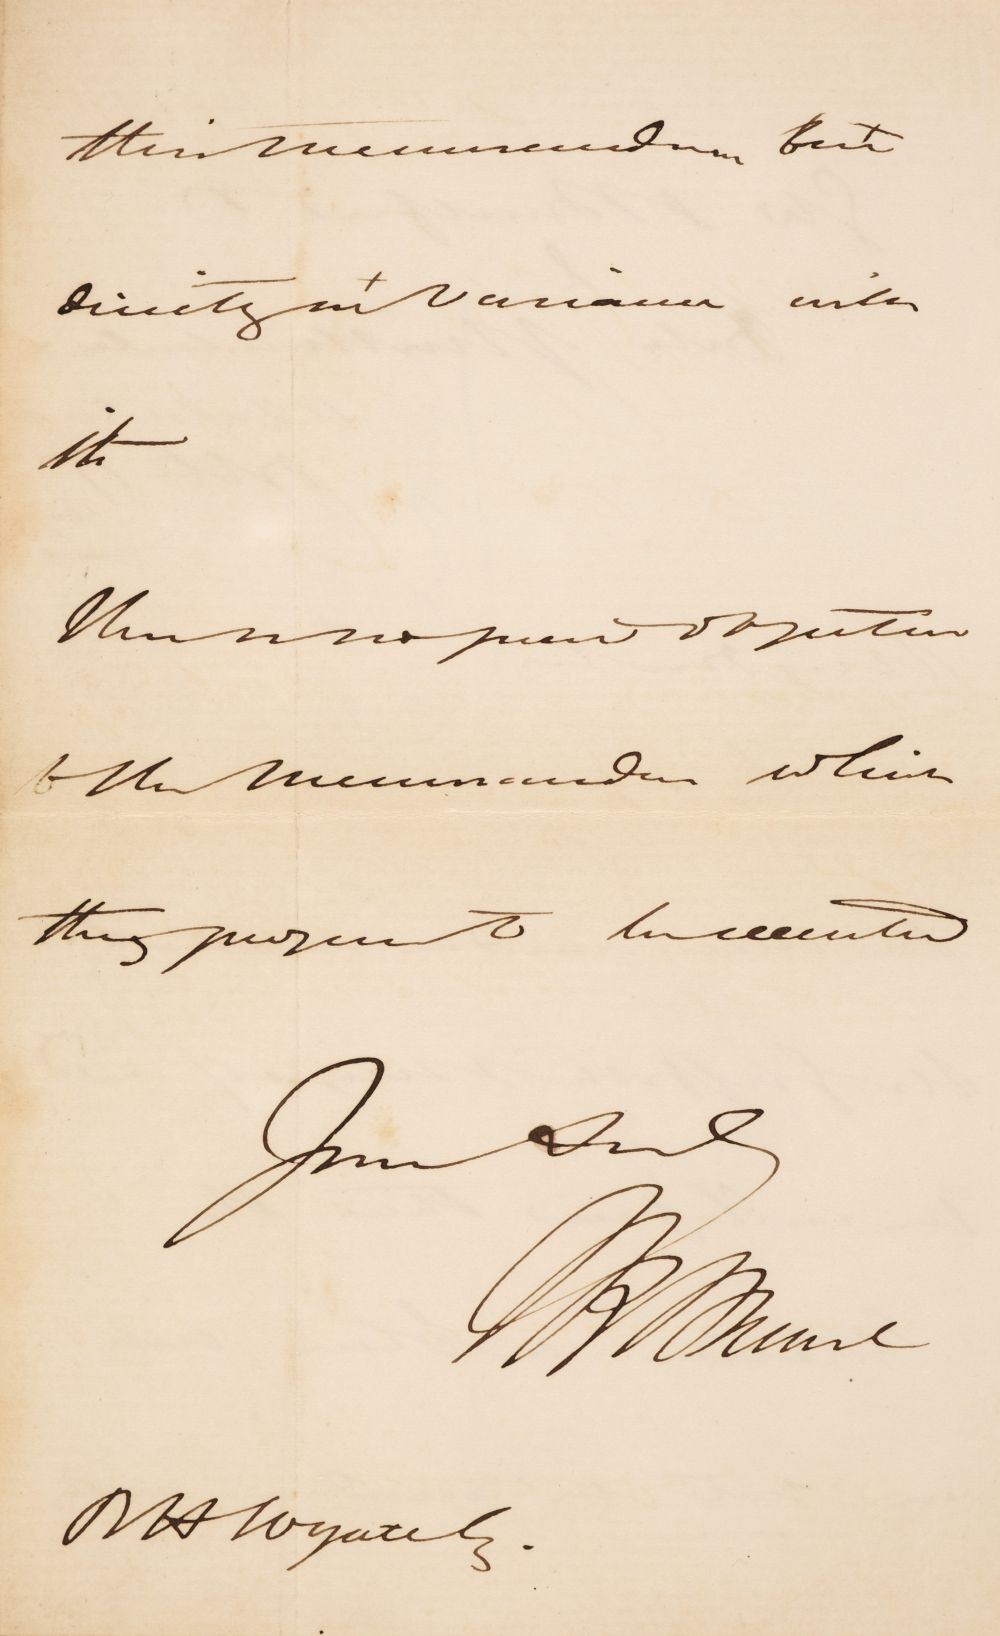 this memorandum but
directly at variance with
it
There is no great objection
to the memorandum which
they propose to be executed
Yours truly
I K Brunel
R H Wyatt Esq.